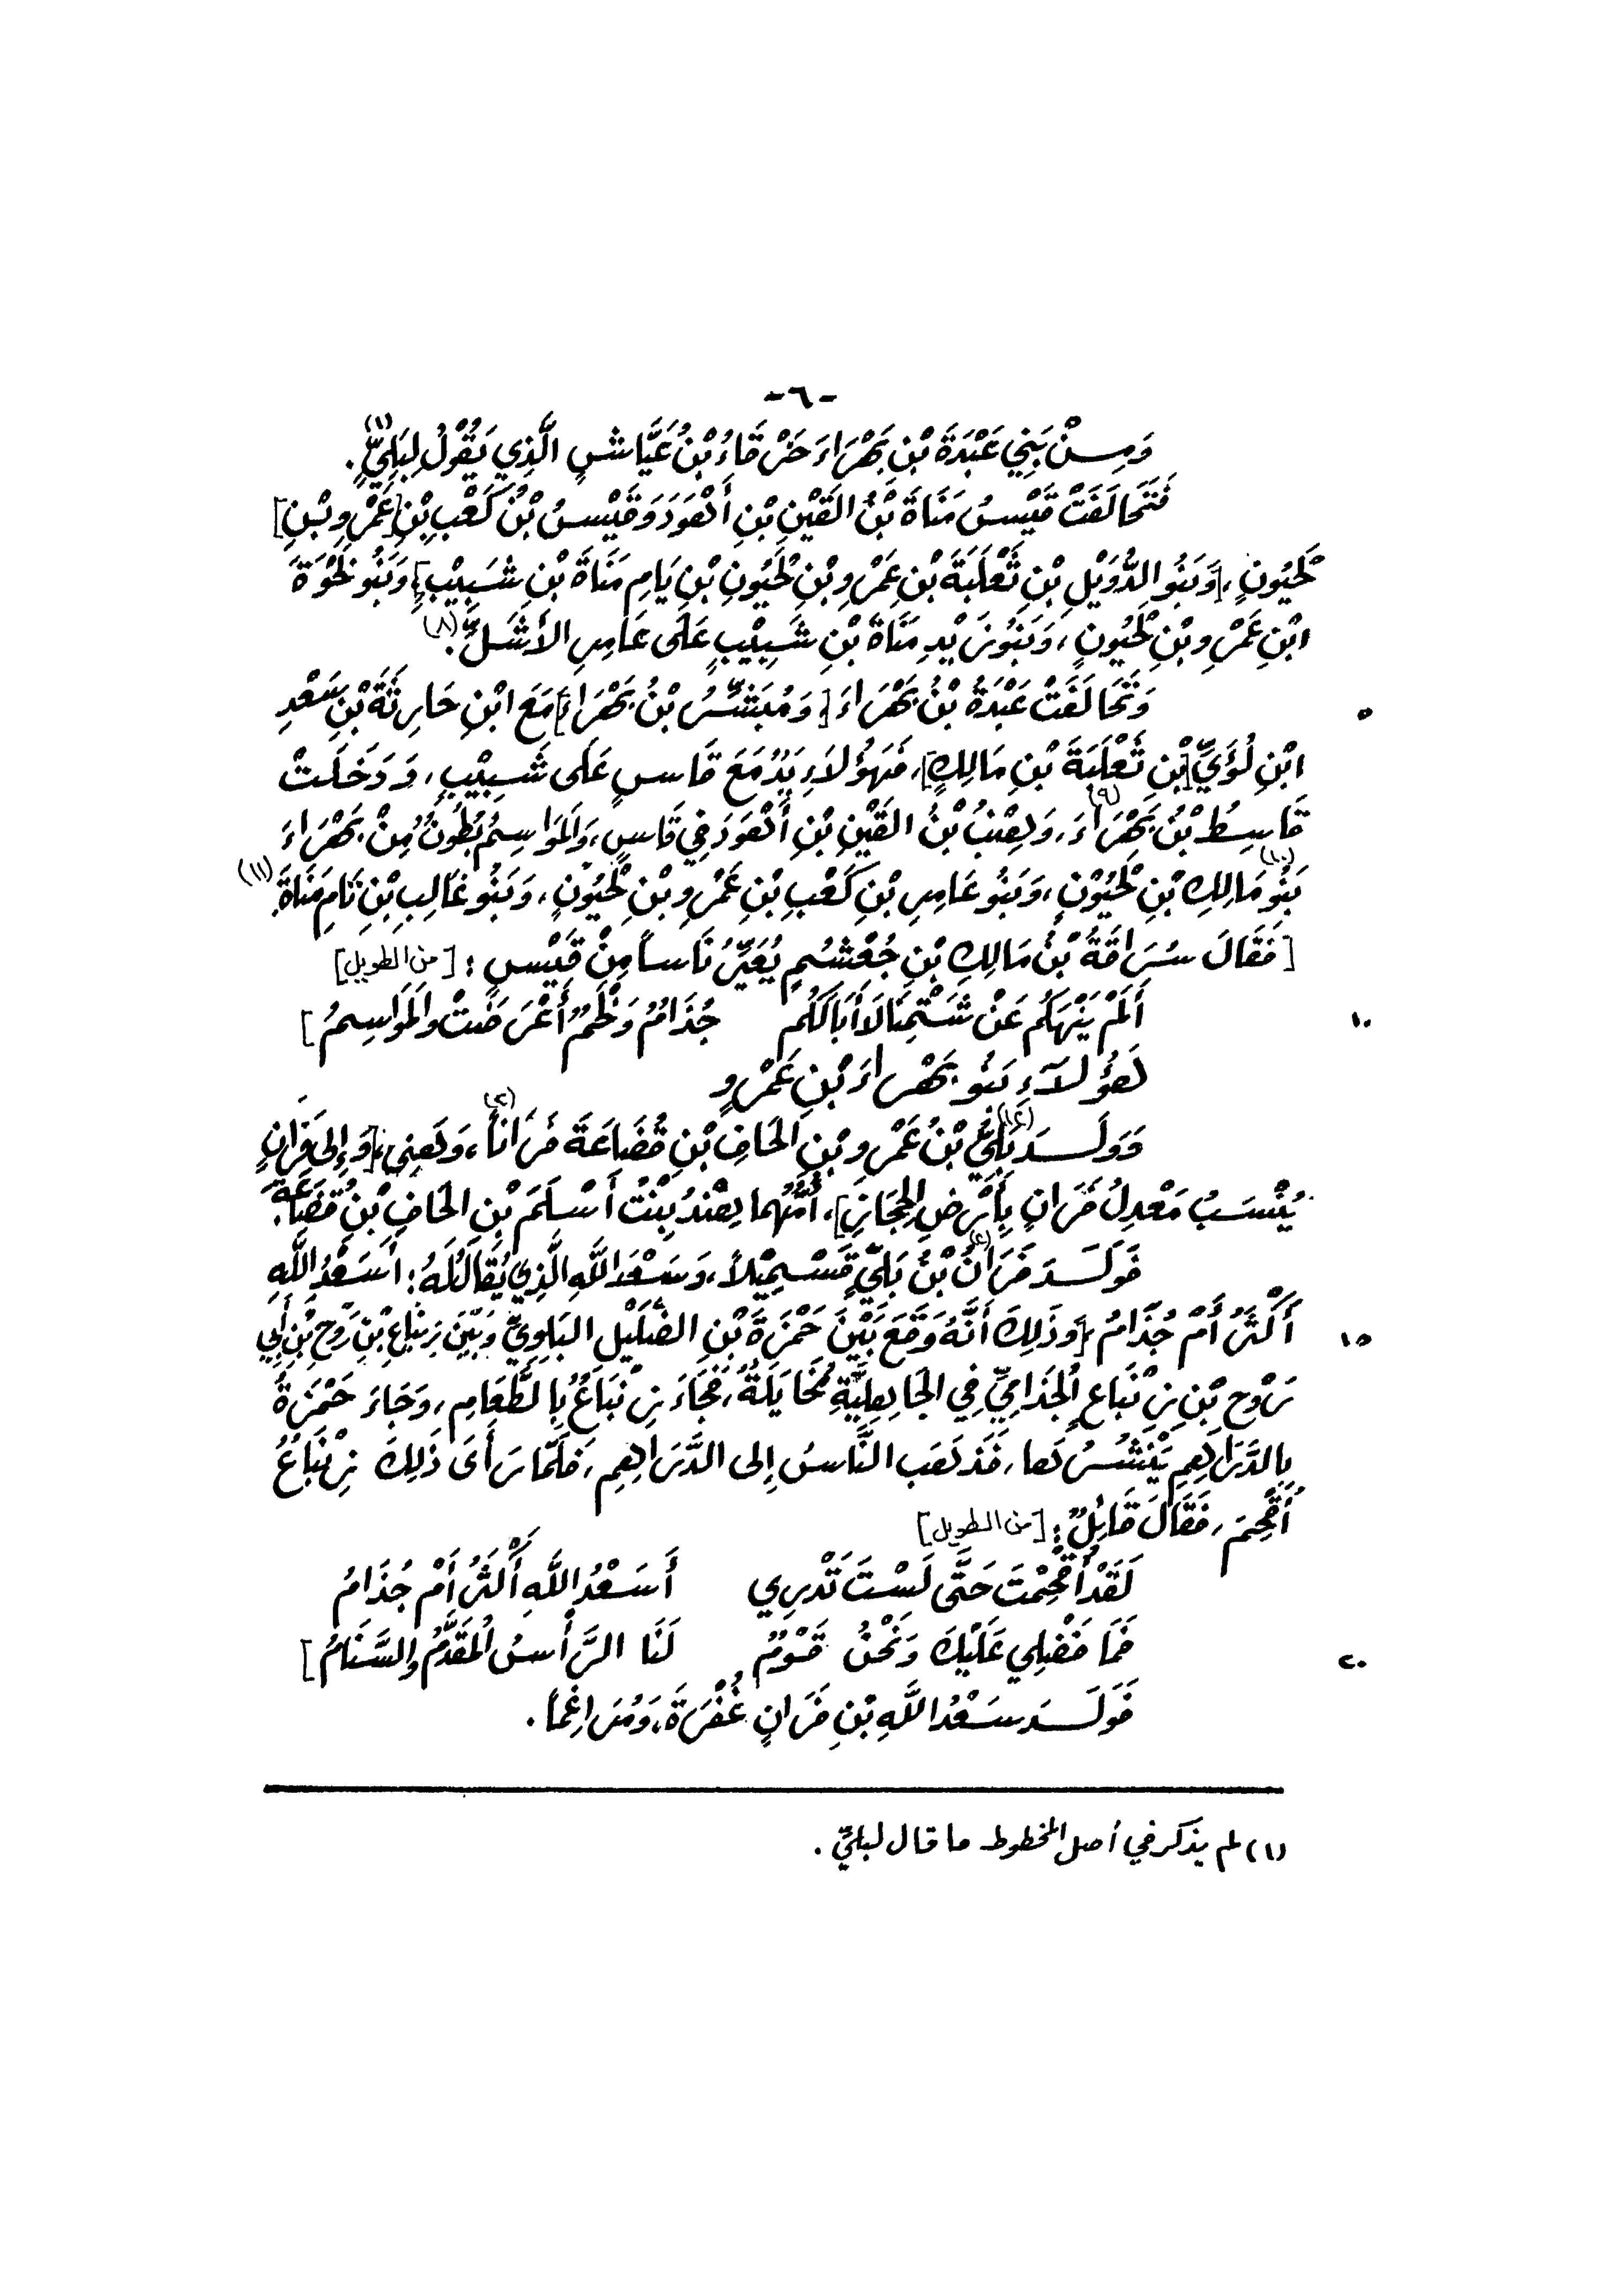 -٦-
وَمِنْ بَنِي عَبْدَةَ بْنِ بَهْرَاءَ حَرْقَاءُ بْنُ عَيَّاشٍ الَّذِي يَقُوْلُ لِبَلِيٍّ (١).
فَتَحَالَفَتْ قَيْسُ مَنَاةَ بْنُ القَيْنِ بْنِ أَهْوَدَ وَقَيْسُ بْنُ كَعْبِ بْنِ [عَمْرِو بْنِ]
لَحْيُونٍ، [وَبَنُو الدُّوَيْلِ بْنِ ثَعْلَبَةَ بْنِ عَمْرِو بْنِ لَحْيُونِ بْنِ يَامِ مَنَاةَ بْنِ شَبِيْبٍ] وَبَنُو لَحْوَةَ
ابْنِ عَمْرِو بْنِ لَحْيُونٍ، وَبَنُو زَيْدِ مَنَاةَ بْنِ شَبِيْبٍ عَلَى عَامِرِ الأَشَلِّ (٨).
٥ وَتَحَالَفَتْ عَبْدَةُ بْنُ بَهْرَاءَ [وَمُبَشِّرُ بْنُ بَهْرَاءَ] مَعَ ابْنِ حَارِثَةَ بْنِ سَعْدِ
ابْنِ لُؤَيِّ [بْنِ ثَعْلَبَةَ بْنِ مَالِكٍ]، فَهَؤُلاَءِ يَدٌ مَعَ قَاسٍ عَلَى شَبِيْبٍ، وَدَخَلَتْ
قَاسِطُ بْنُ بَهْرَاءَ (٩)، وَهِنْبُ بْنُ القَيْنِ بْنِ أَهْوَدَ فِي قَاسٍ، وَالمَوَاسِمُ بُطُونٌ مِنْ بَهْرَاءَ
بَنُو مَالِكِ بْنِ لَحْيُوْنٍ (١٠)، وَبَنُو عَامِرِ بْنِ كَعْبِ بْنِ عَمْرِو بْنِ لَحْيُوْنٍ، وَبَنُو غَالِبِ بْنِ نَامِ مَنَاةَ (١١).
[فَقَالَ سُرَاقَةُ بْنُ مَالِكِ بْنِ جُعْشُمٍ يُعَيِّرُ نَاساً مِنْ قَيْسٍ: [من الطويل]
١٠ أَلَمْ يَنْهَكُم عَنْ شَتْمِنَا لاَ أَبَالَكُم جُذَامٌ وَلَخْمٌ أَعْرَضَتْ وَالمَوَاسِمُ]
هَؤُلاَءِ بَنُو بَهْرَاءَ بْنِ عَمْرٍو
وَوَلَدَ بَلِيُّ (١٢) بْنُ عَمْرِو بْنِ الحَافِ بْنِ قُضَاعَةَ فَرَاناً (٣)، وَهَنِيٍ، [وَإِلى فَرَانٍ
يُنْسَبُ مَعْدِنُ فَرَانٍ بِأَرْضِ الحِجَازِ]، أُمُّهُما هِنْدُ بِنْتُ أَسْلَمَ بْنِ الحَافِ بْنِ قُضَاعَةَ.
فَوَلَدَ فَرَانُ (٤) بْنُ بَلِيٍّ قَسْمِيْلاً، وَسَعْدَ اللَّهِ الَّذِي يُقَالُ لَهُ: أَسَعْدُ اللَّهِ
١٥ أَكْثَرُ أَمْ جُذَامُ [وَذَلِكَ أَنَّهُ وَقَعَ بَيْنَ حَمْزَةَ بْنِ الضَّلِيْلِ البَلَوِيِّ وَبَيْنَ زِنْبَاعِ بْنِ رَوْحِ بْنِ أَبِي
رَوْحِ بْنِ زِنْبَاعٍ الجُذَامِيِّ فِي الجَاهِلِيَّةِ مُخَايَلَةٌ، فَجَاءَ زِنْبَاعٌ بِالطَّعَامِ، وَجَاءَ حَمْزَةُ
بِالدَّرَاهِمِ يَنْثُرُهَا، فَذَهَبَ النَّاسُ إِلى الدَّرَاهِمِ، فَلَمَّا رَأَى ذَلِكَ زِنْبَاعُ
أُقْحِمَ، فَقَالَ قَائِلٌ: [من الطويل]
لَقَدْ أُقْحِمْتَ حَتَّى لَسْتَ تَدْرِي أَسَعْدُ اللَّهِ أَكْثَرُ أَمْ جُذَامُ
٢٠ فَمَا فَضْلِي عَلَيْكَ وَنَحْنُ قَوْمٌ لَنَا الرَّأْسُ المُقَدَّمُ وَالسَّنَامُ]
فَوَلَدَ سَعْدُ اللَّهِ بْنِ فَرَانٍ غُفْرَةَ، وَمُرَاغِماً.
(١) لم يذكر في أصل المخطوط ما قال لبليٍّ.